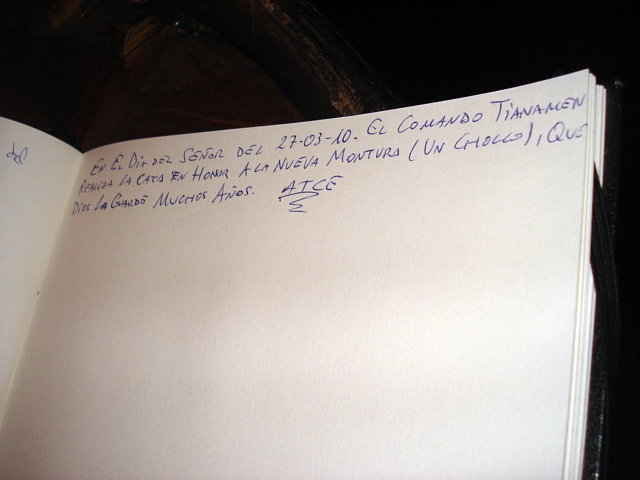 EN EL DÍA DEL SEÑOR DEL 27-03-10. EL COMANDO TIANAMEN
REALIZA LA CATA EN HONOR A LA NUEVA MONTURA (UN CHOLLO), QUE
DIOS LA GUARDE MUCHOS AÑOS.